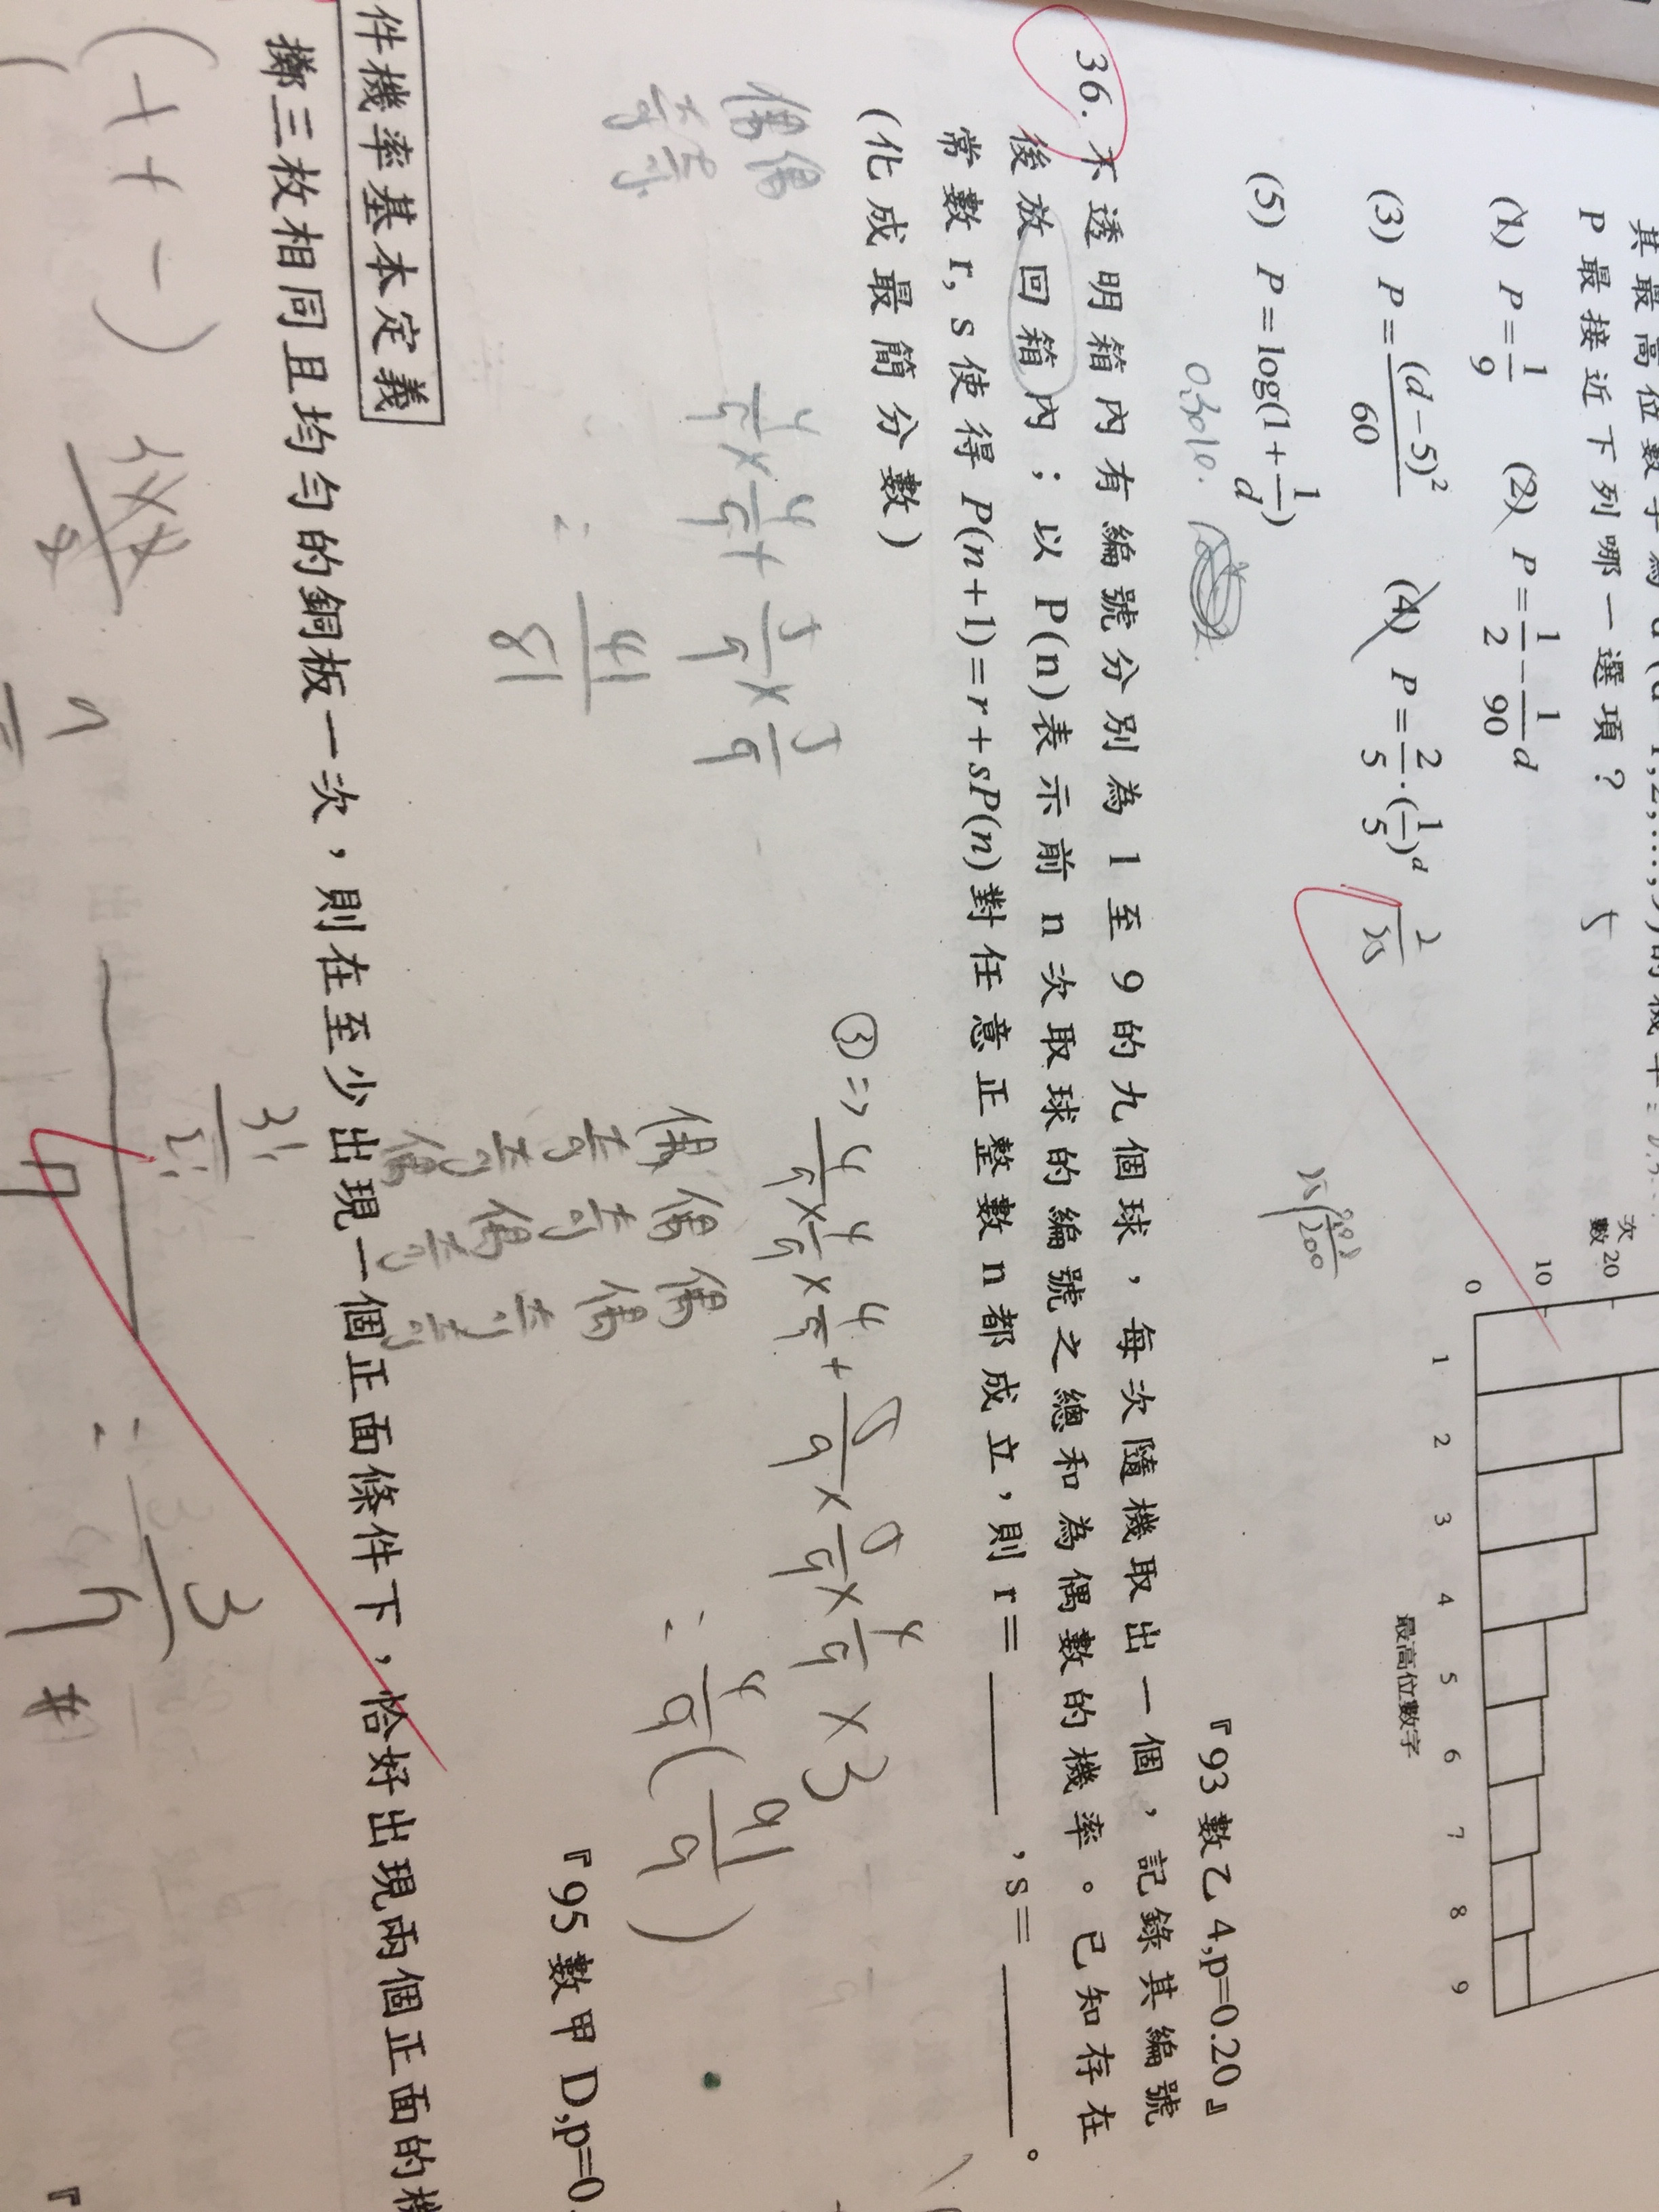 P 最接近下列哪一選項？
(1) P=1/9 (2) P=1/2-1/90d
(3) P=(d-5)²/60 (4) P=2/5·(1/5)^d
(5) P=log(1+1/d)
0.3010
2/25
次數
20
10
0
1 2 3 4 5 6 7 8 9
最高位數字
『93 數乙 4,p=0.20』
36. 不透明箱內有編號分別為 1 至 9 的九個球，每次隨機取出一個，記錄其編號
後放回箱內；以 P(n)表示前 n 次取球的編號之總和為偶數的機率。已知存在
常數 r, s 使得 P(n+1)=r+sP(n)對任意正整數 n 都成立，則 r=＿＿＿，s=＿＿＿。
(化成最簡分數)
偶偶
奇奇
4/9×4/9+5/9×5/9
=41/81
③⇒ 4/9×4/9×4/9+5/9×5/9×4/9×3
=4/9(91/9)
偶偶偶
奇奇偶
奇偶奇
偶奇奇
『95 數甲 D,p=0.
件機率基本定義
擲三枚相同且均勻的銅板一次，則在至少出現一個正面條件下，恰好出現兩個正面的機
(++-)
3!/2!
=3/